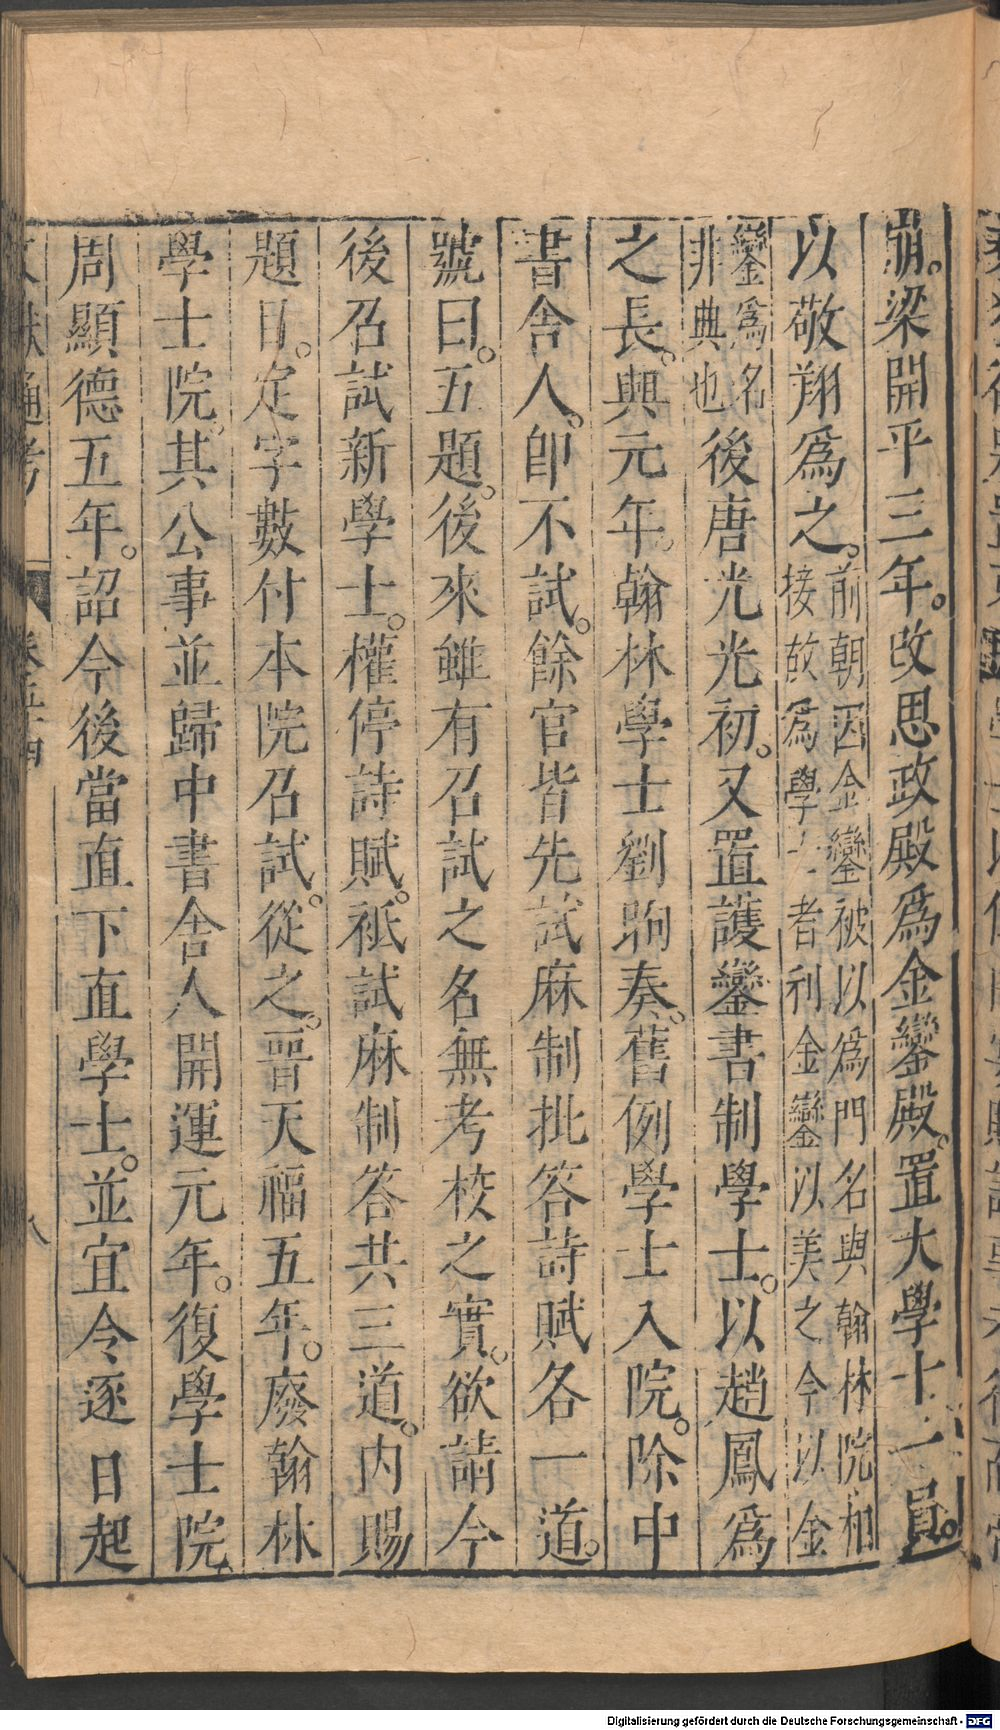 崩。梁開平三年。改思政殿爲金鑾殿。置大學士一員。
以敬翔爲之。前朝因金鑾被以爲門名與翰林院相
接故爲學士者利金鑾以美之今以金
鑾爲名
非典也後唐光光初。又置護鑾書制學士。以趙鳳爲
之長。興元年。翰林學士劉昫奏。舊例學士入院。除中
書舍人。即不試。餘官皆先試麻制批答詩賦各一道。
號曰。五題。後來雖有召試之名無考校之實。欲請今
後召試新學士。權停詩賦。祗試麻制答共三道。内賜
題目。定字數付本院召試。從之。晉天福五年。廢翰林
學士院。其公事並歸中書舍人開運元年。復學士院。
周顯德五年。詔今後當直下直學士。並宜令逐日起
文獻通考 卷五十四 八
Digitalisierung gefördert durch die Deutsche Forschungsgemeinschaft - DFG